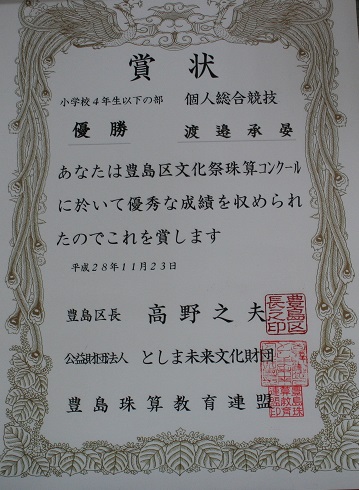 賞状
小学校4年生以下の部 個人総合競技
優勝 渡邉承晏
あなたは豊島区文化祭珠算コンクール
に於いて優秀な成績を収められ
たのでこれを賞します
平成28年11月23日
豊島区長 高野之夫
豊島区長之印
公益財団法人 としま未来文化財団
豊島珠算教育連盟